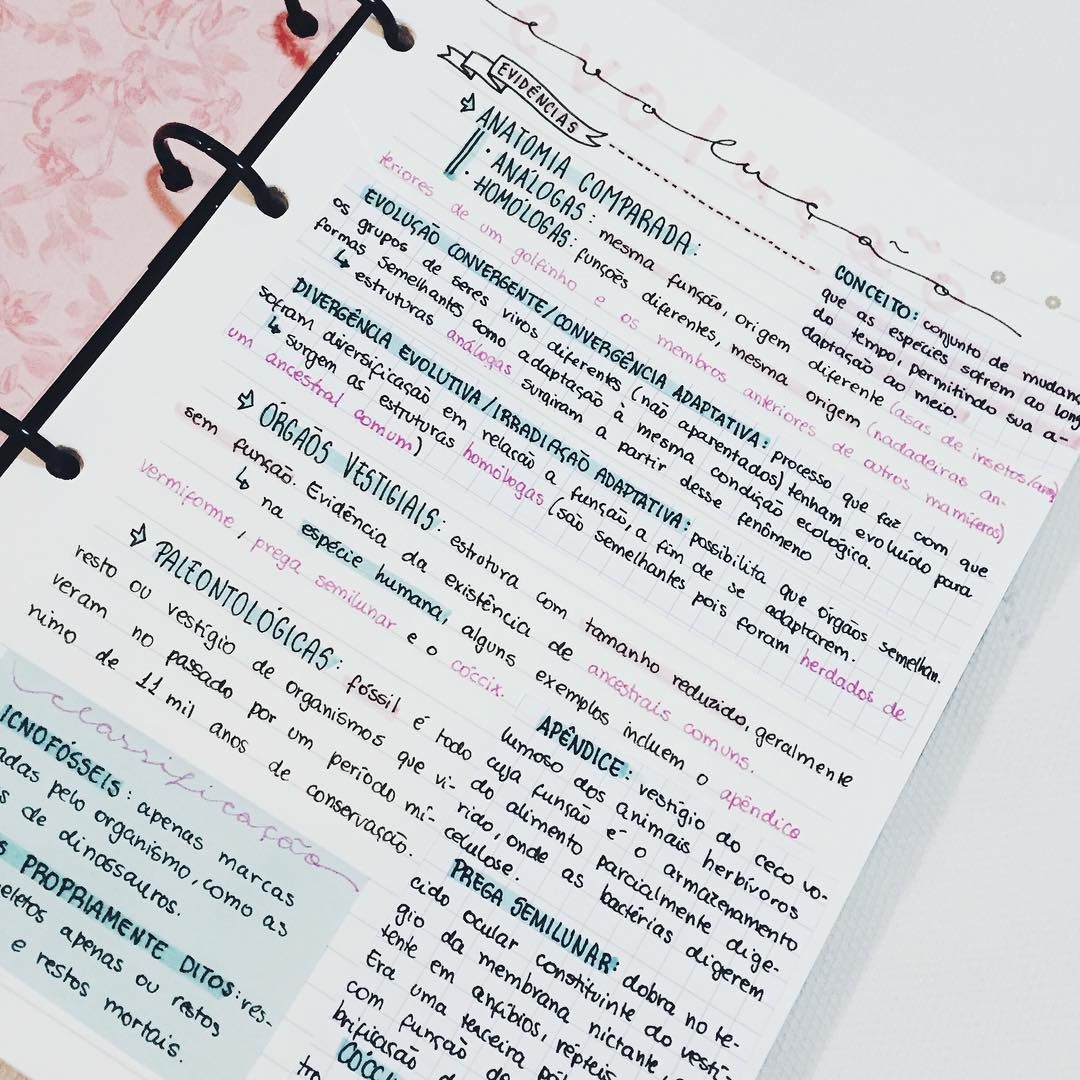 evolução
EVIDÊNCIAS
CONCEITO: conjunto de
que as espécies sofrem ao
do tempo, permitindo sua a-
daptação ao meio.
ANATOMIA COMPARADA:
· ANÁLOGAS: mesma função, origem diferente (asas de insetos/
· HOMÓLOGAS: funções diferentes, mesma origem (nadadeiras an-
teriores de um golfinho e os membros anteriores de outros mamíferos)
EVOLUÇÃO CONVERGENTE/CONVERGÊNCIA ADAPTATIVA: processo que faz com que
os grupos de seres vivos diferentes (não aparentados) tenham evoluído para
formas semelhantes como adaptação à mesma condição ecológica.
↳ estruturas análogas surgiram a partir desse fenômeno
DIVERGÊNCIA EVOLUTIVA/IRRADIAÇÃO ADAPTATIVA: possibilita que órgãos semelhan.
sofram diversificação em relação a função, a fim de se adaptarem.
↳ surgem as estruturas homólogas (são semelhantes pois foram herdados de
um ancestral comum)
ÓRGÃOS VESTIGIAIS: estrutura com tamanho reduzido, geralmente
sem função. Evidência da existência de ancestrais comuns.
↳ na espécie humana, alguns exemplos incluem o apêndice
vermiforme, prega semilunar e o cóccix.
PALEONTOLÓGICAS: fóssil é todo
resto ou vestígio de organismos que vi-
veram no passado por um período mí-
nimo de 11 mil anos de conservação.
APÊNDICE: vestígio do ceco vo-
lumoso dos animais herbívoros
cuja função é o armazenamento
do alimento parcialmente dige-
rido, onde as bactérias digerem
celulose.
PREGA SEMILUNAR: dobra no te-
cido ocular constituinte do vestí-
gio da membrana nictante,
tente em anfíbios, répteis
Era uma terceira
com função de
brificação
classificação
ICNOFÓSSEIS: apenas marcas
pelo organismo, como as
de dinossauros.
PROPRIAMENTE DITOS: res-
apenas ou restos
e restos mortais.